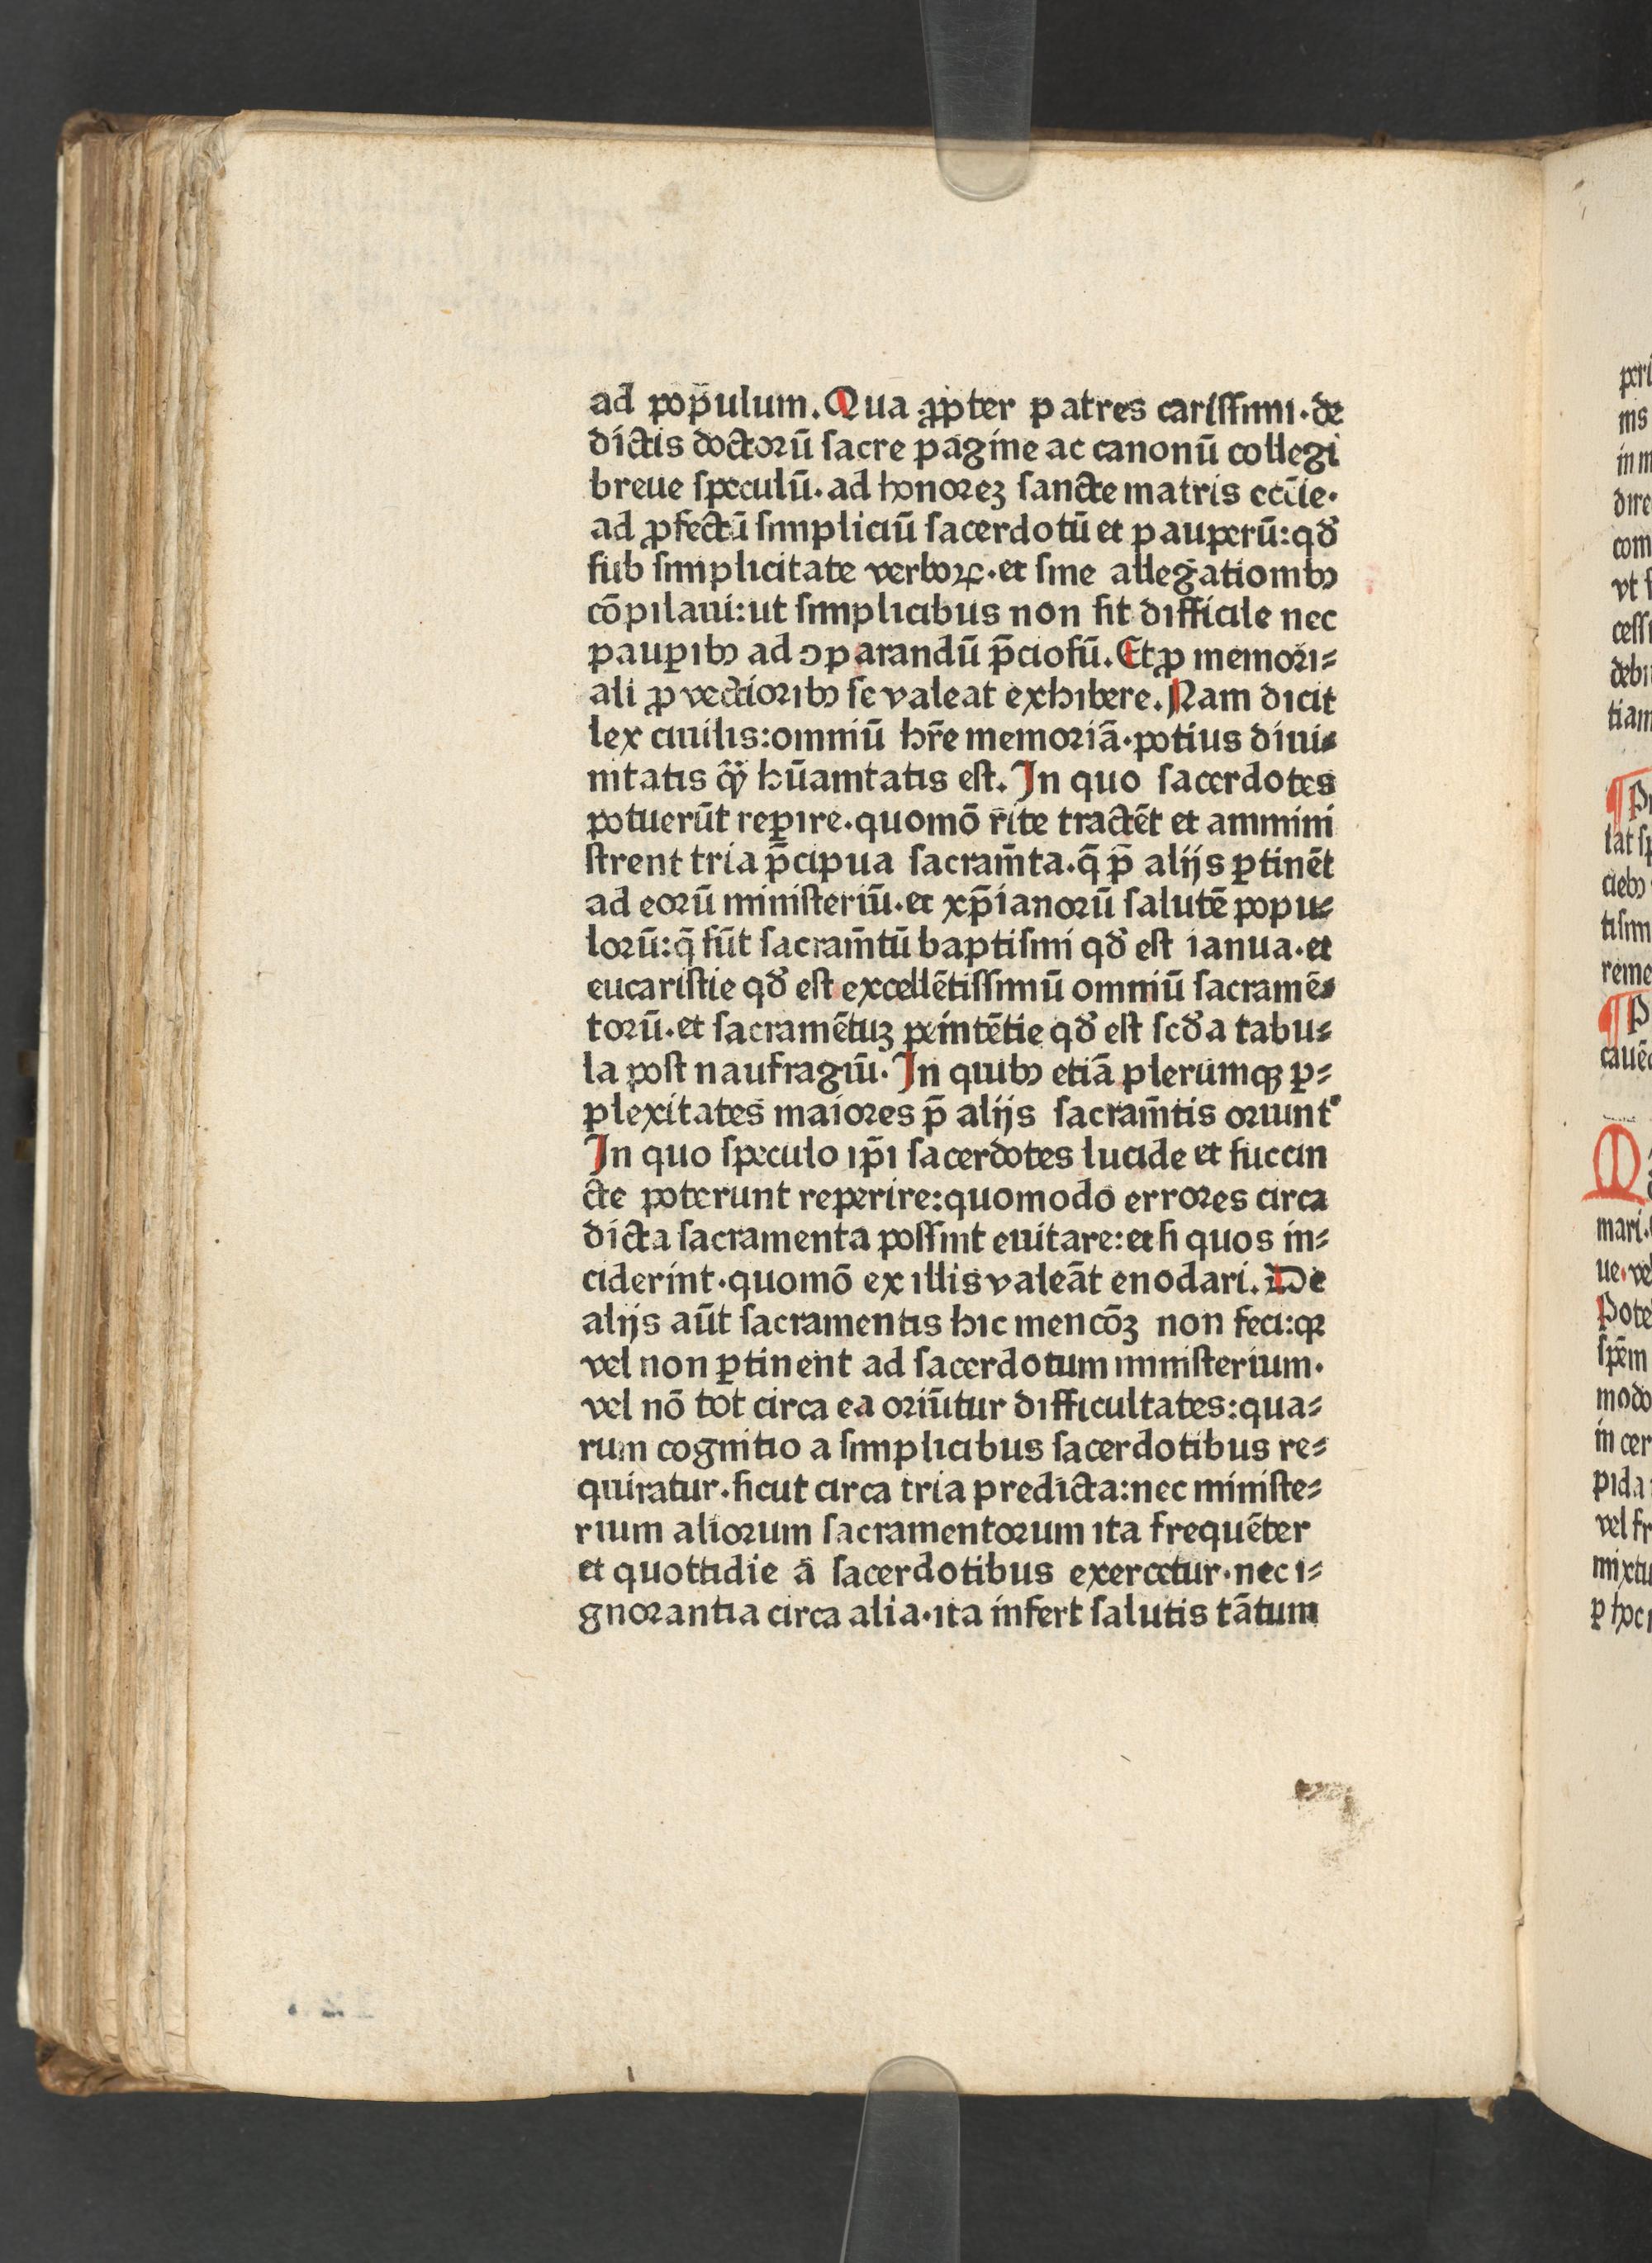 ad populum. Qua ꝓpter patres cariſſimi·de
dictis doctorū ſacre pagine ac canonū collegi
breue ſpeculū·ad honoreʒ ſancte matris eccīe·
ad ꝓfectū ſimpliciū ſacerdotū et pauperū:qđ
ſub ſimplicitate verboꝝ·et ſine allegationibꝰ
cōpilaui:ut ſimplicibus non ſit difficile nec
pauꝑibꝰ ad ꝯparandū p̄cioſū. Et ꝓ memori⸗
ali ꝓ vectioribꝰ ſe valeat exhibere. Nam dicit
lex ciuilis:omniū hr̄e memoriā·potius diui⸗
nitatis qͣ̄ꝫ hūanitatis eſt. In quo ſacerdotes
potuerūt reꝑire·quomō rite tractēt et ammini
ſtrent tria p̄cipua ſacram̄ta·q̄ p̄ alijs ꝑtinēt
ad eorū miniſteriū·et xp̄ianorū ſalutē popu⸗
lorū:q̄ ſūt ſacram̄tū baptiſmi qđ eſt ianua·et
eucariſtie qđ eſt excellētiſſimū omniū ſacramē⸗
torū·et ſacramētuʒ penitētie qđ eſt ſcđa tabu⸗
la poſt naufragiū. In quibꝰ etiā plerumqꝫ ꝑ⸗
plexitates maiores p̄ alijs ſacram̄tis oriunt᷑
In quo ſpeculo ip̄i ſacerdotes lucide et ſuccin
cte poterunt reperire:quomodo errores circa
dicta ſacramenta poſſint euitare:et ſi quos in⸗
ciderint·quomō ex illis valeāt enodari. De
alijs aūt ſacramentis hic mencōʒ non feci:qꝛ
vel non ꝑtinent ad ſacerdotum miniſterium·
vel nō tot circa ea oriūtur difficultates:qua⸗
rum cognitio a ſimplicibus ſacerdotibus re⸗
quiratur·ſicut circa tria predicta:nec miniſte⸗
rium aliorum ſacramentorum ita frequēter
et quottidie a ſacerdotibus exercetur·nec i⸗
gnorantia circa alia·ita infert ſalutis tātum